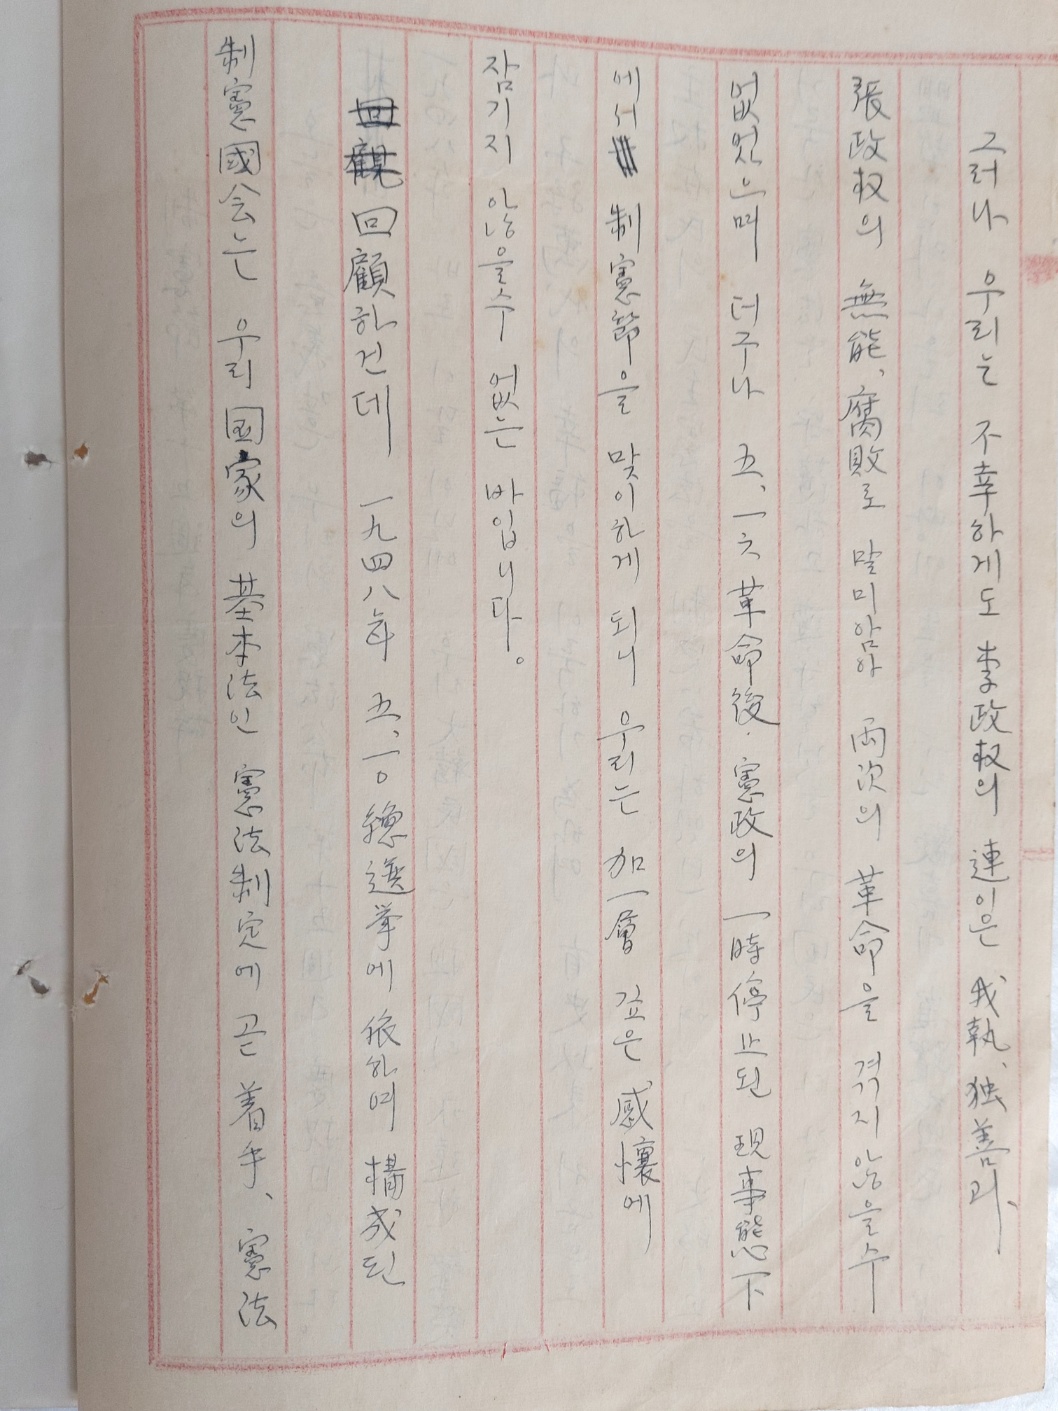 그러나 우리는 不幸하게도 李政权의 連이은 我執、独善과、
張政权의 無能、腐敗로 말미암아 両次의 革命을 겪지 않을수
없었으며 더구나 五、一六革命後、憲政의 一時停止된 現事態下
에서 制憲節을 맞이하게 되니 우리는 加一層 깊은 感懷에
잠기지 않을수 없는 바입니다。
回觀 回顧하건데 一九四八年 五、一○ 總選挙에 依하여 構成된
制憲國会는 우리 国家의 基本法인 憲法制定에 곧 着手、憲法